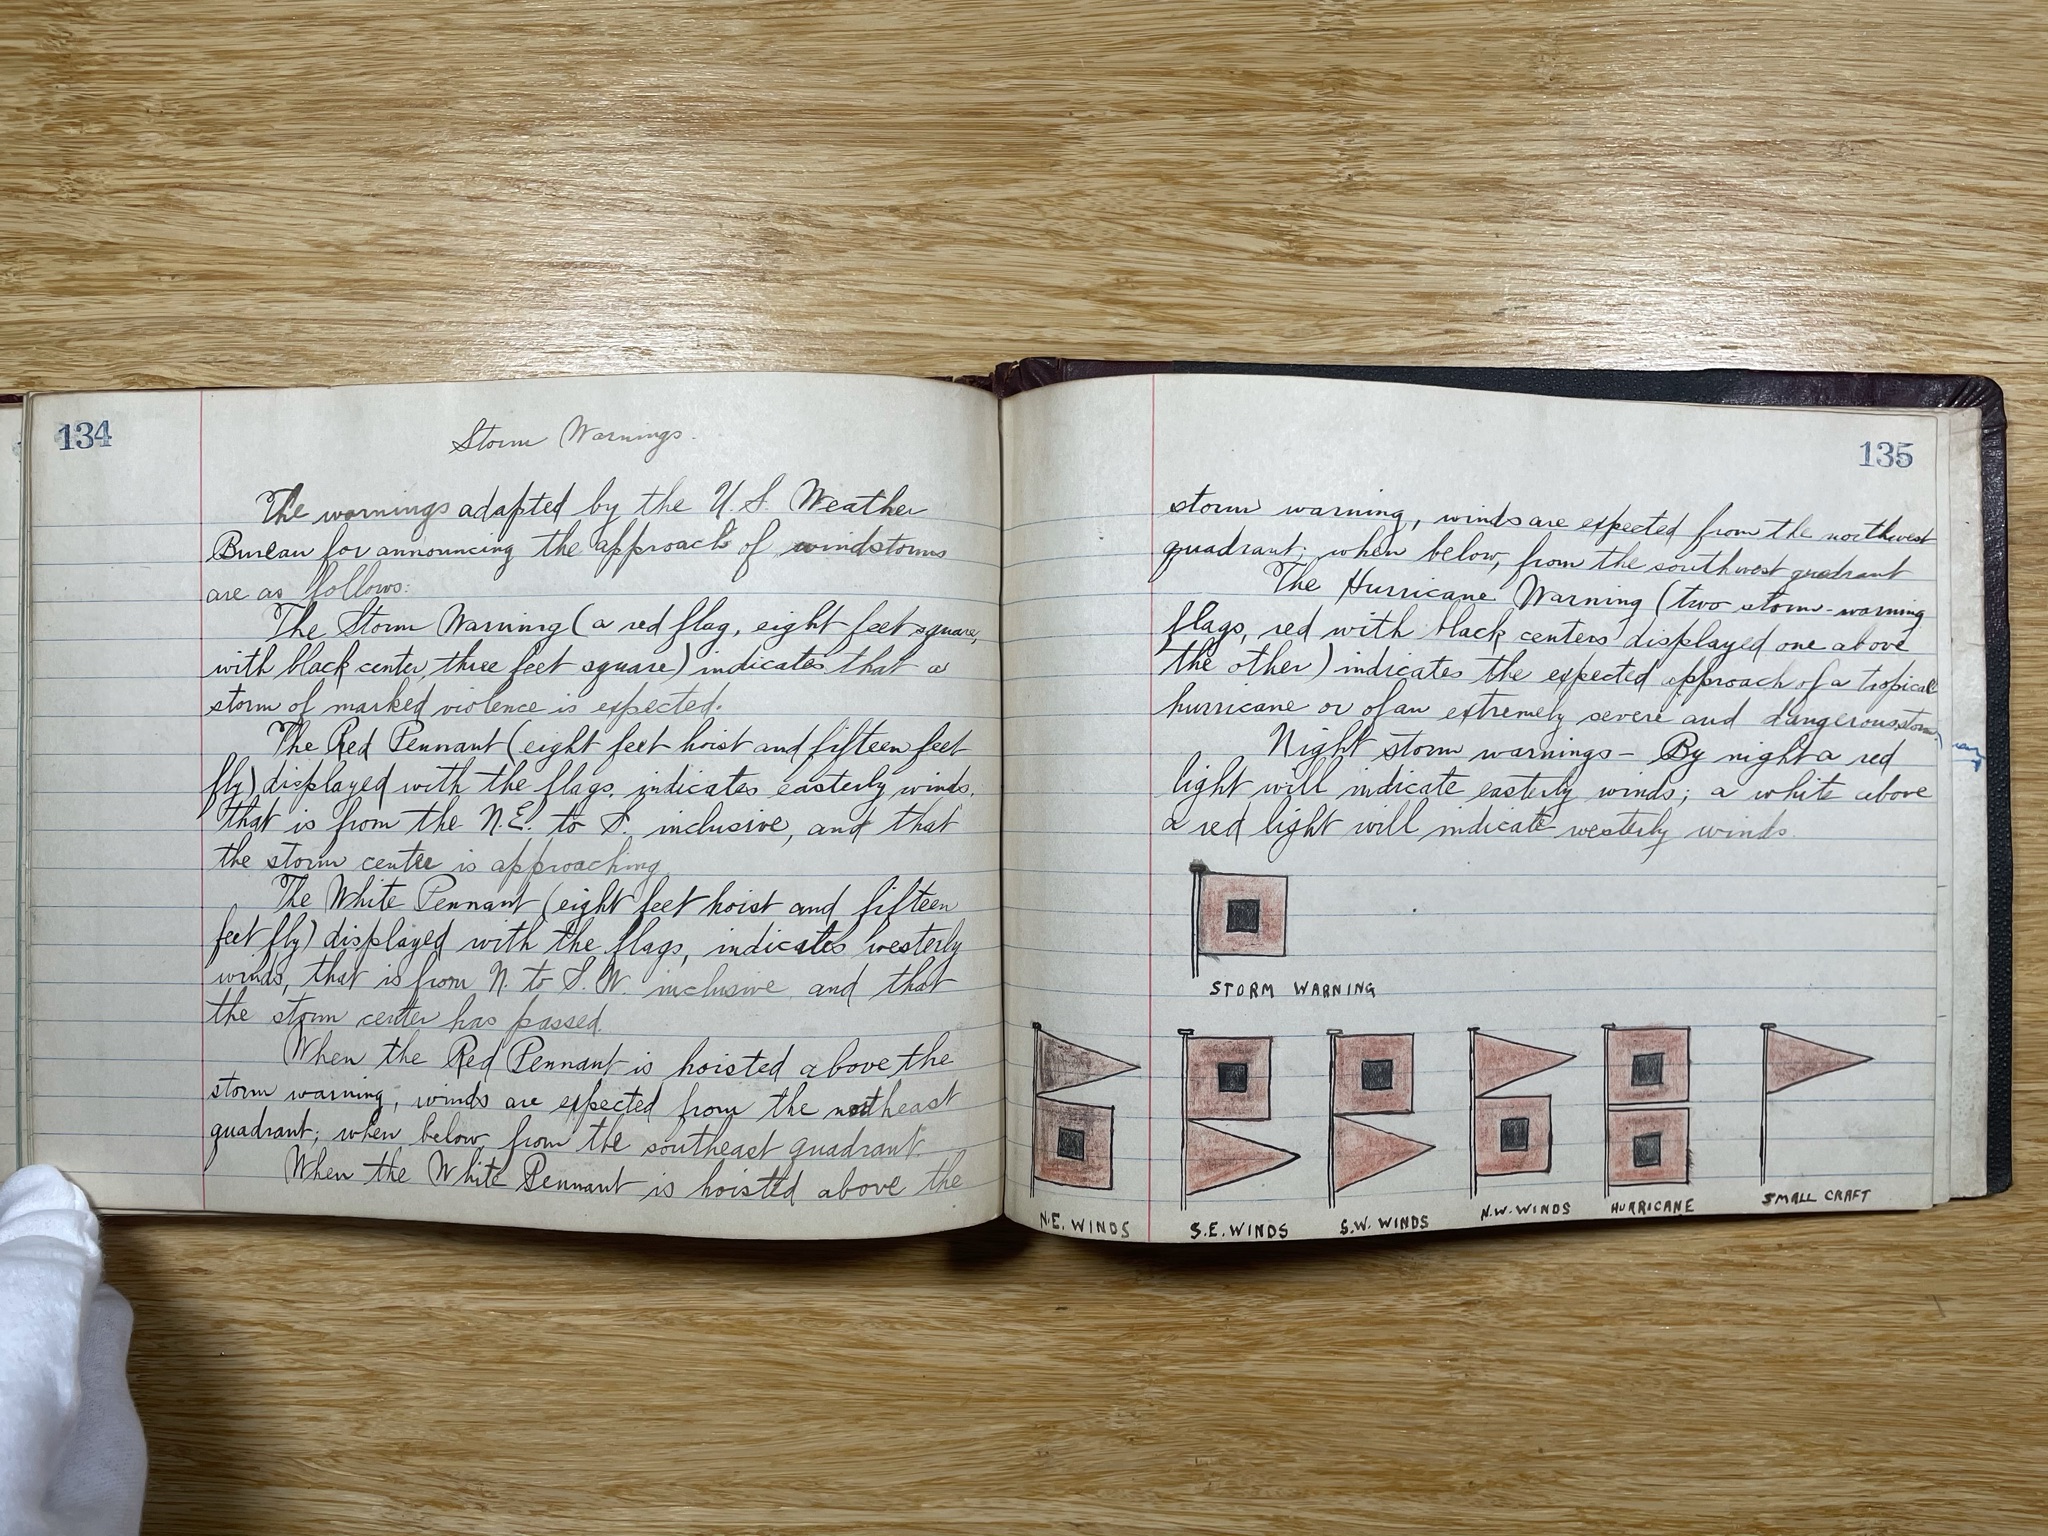 134
Storm Warnings.
The warnings adapted by the U. S. Weather
Bureau for announcing the approach of windstorms
are as follows:
The Storm Warning (a red flag, eight feet square,
with black center, three feet square) indicates that a
storm of marked violence is expected.
The Red Pennant (eight feet hoist and fifteen feet
fly) displayed with the flags, indicates easterly winds,
that is from the N.E. to S. inclusive, and that
the storm centre is approaching.
The White Pennant (eight feet hoist and fifteen
feet fly) displayed with the flags, indicates westerly
winds, that is from N. to S.W. inclusive and that
the storm center has passed.
When the Red Pennant is hoisted above the
storm warning, winds are expected from the northeast
quadrant; when below, from the southeast quadrant.
When the White Pennant is hoisted above the
135
storm warning, winds are expected from the northwest
quadrant; when below, from the southwest quadrant
The Hurricane Warning (two storm-warning
flags, red with black centers displayed one above
the other) indicates the expected approach of a tropical
hurricane or of an extremely severe and dangerous storm.
Night storm warnings - By night a red
light will indicate easterly winds; a white above
a red light will indicate westerly winds.
STORM WARNING
N.E. WINDS
S.E. WINDS
S.W. WINDS
N.W. WINDS
HURRICANE
SMALL CRAFT